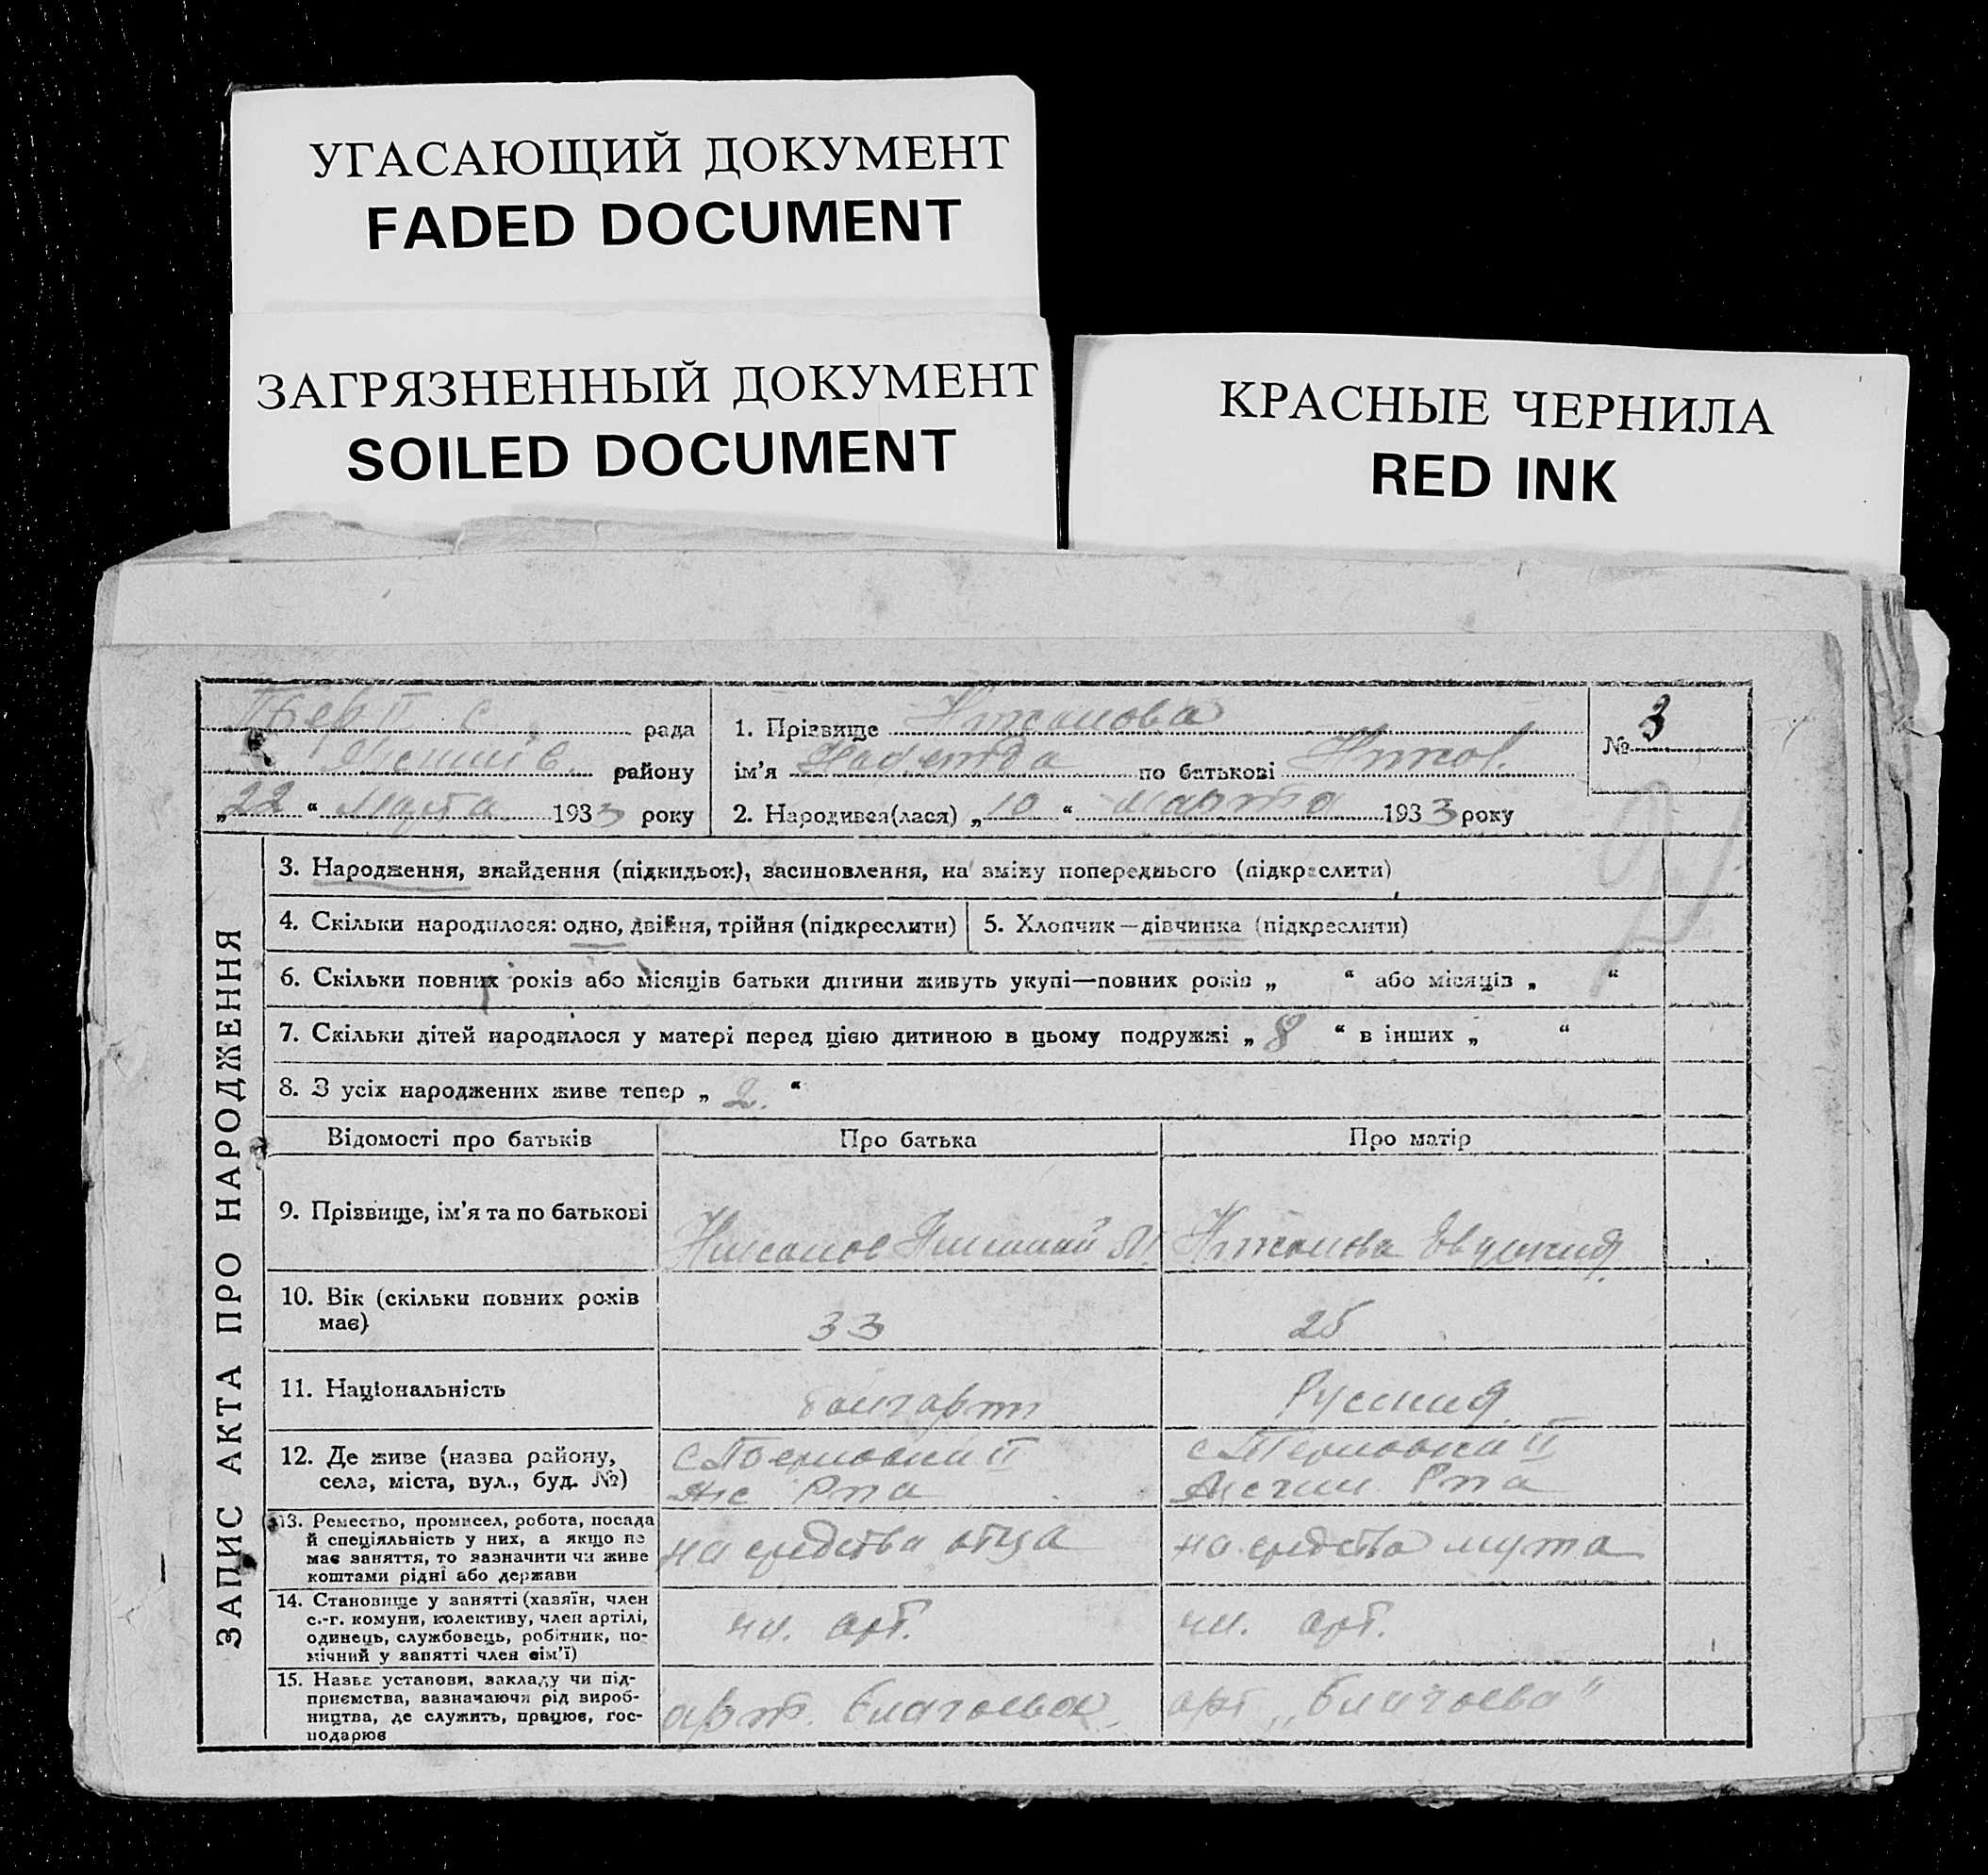 УГАСАЮЩИЙ ДОКУМЕНТ
FADED DOCUMENT
ЗАГРЯЗНЕННЫЙ ДОКУМЕНТ
SOILED DOCUMENT
КРАСНЫЕ ЧЕРНИЛА
RED INK
рада
району
„22“ Марта 1933 року
1. Прізвище
ім'я Надежда по батькові
2. Народився(лася) „10“ Марта 1933 року
№ 3
ЗАПИС АКТА ПРО НАРОДЖЕННЯ
3. Народження, знайдення (підкидьок), засиновлення, на зміну попереднього (підкреслити)
4. Скільки народилося: одно, двійня, трійня (підкреслити)
5. Хлопчик—дівчинка (підкреслити)
6. Скільки повних років або місяців батьки дитини живуть укупі—повних років „ “ або місяців „ “
7. Скільки дітей народилося у матері перед цією дитиною в цьому подружжі „8“ в інших „ “
8. З усіх народжених живе тепер „2.“
Відомості про батьків
Про батька
Про матір
9. Прізвище, ім'я та по батькові
10. Вік (скільки повних років
має)
33
25
11. Національність
болгарин
Русская
12. Де живе (назва району,
села, міста, вул., буд. №)
с Терновка II
с Терновка II
13. Ремество, промисел, робота, посада
й спеціяльність у них, а якщо не
має заняття, то зазначити чи живе
коштами рідні або держави
на средства отца
на средства мужа
14. Становище у занятті (хазяїн, член
с.-г. комуни, колективу, член артілі,
одинець, службовець, робітник, по-
мічний у занятті член сім'ї)
чл. арт.
чл. арт.
15. Назва установи, закладу чи під-
приємства, зазначаючи рід вироб-
ництва, де служить, працює, гос-
подарює
арт. Благоева
арт „Благоева"